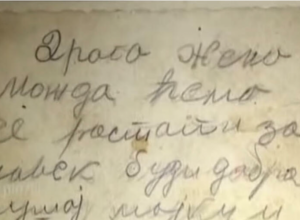 Драга жено
можда ћемо
се растати за
навек буди добра
мајку и